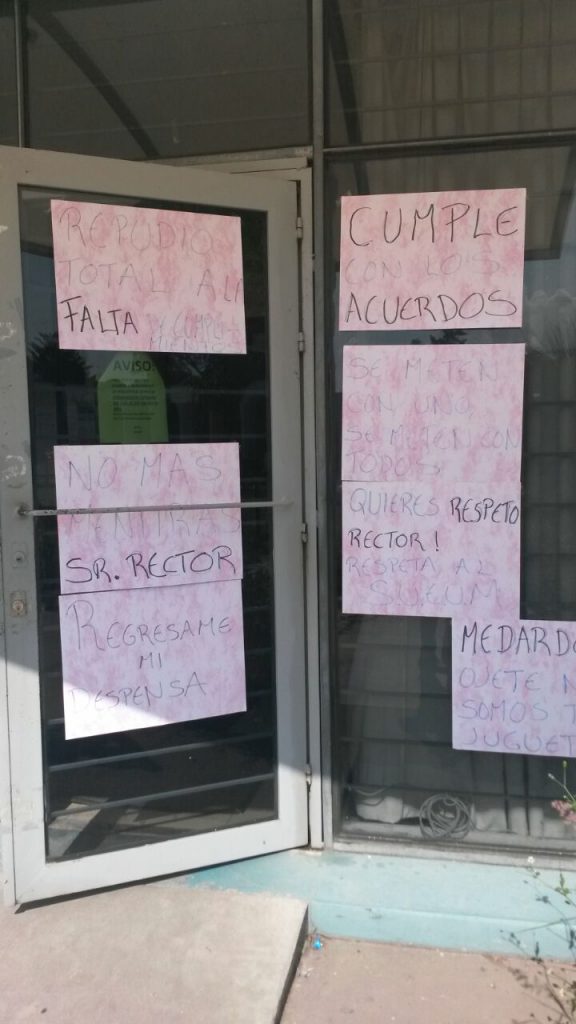 REPUDIO
TOTAL A LA
FALTA Y CUMPLI-
MIENTO
AVISO:
NO MAS
MENTIRAS
SR. RECTOR
REGRESAME
MI
DESPENSA
CUMPLE
CON LOS
ACUERDOS
SE METEN
CON UNO,
SE METEN CON
TODOS
QUIERES RESPETO
RECTOR!
RESPETA AL
SUEUM
MEDARDO
OJETE N
SOMOS T
JUGUET